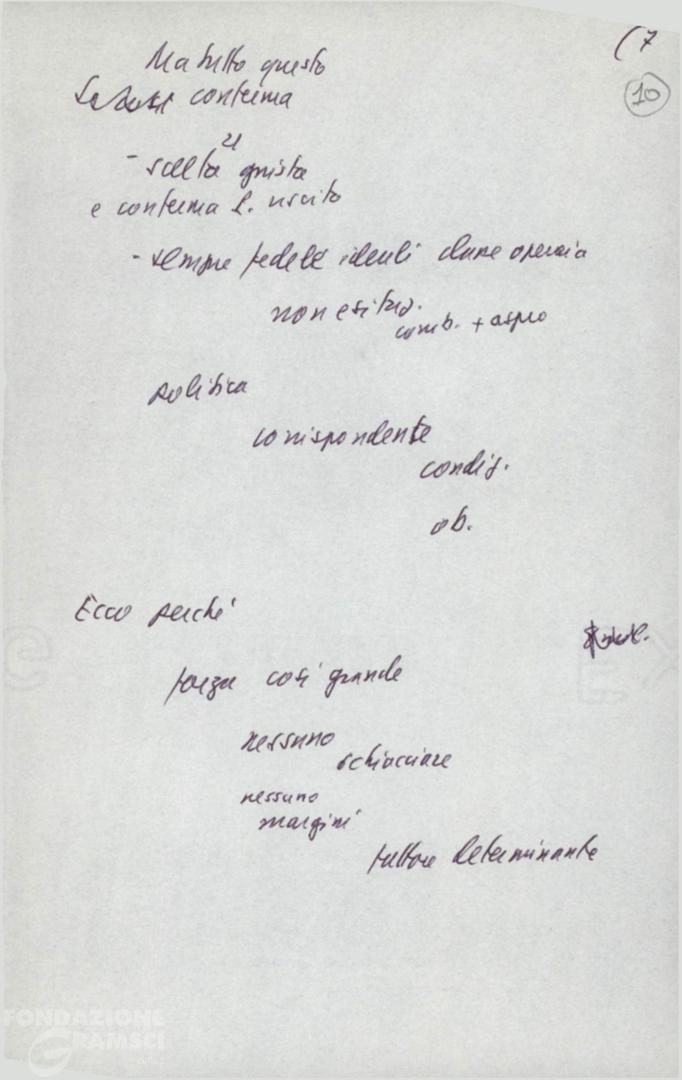 (7
10
Ma tutto questo
conferma
21
- scelta giusta
e conferma L. uscito
- sempre fedele ideali classe operaia
non esitaz.
comb. + aspro
politica
corrispondente
condiz.
ob.
Ecco perché
forza così grande
nessuno
schiacciare
nessuno
margini
fattore determinante
FONDAZIONE
GRAMSCI